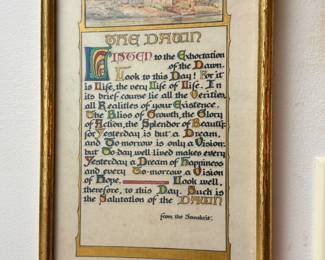 THE DAWN
LISTEN to the Exhortation
of the Dawn.
Look to this Day! For it
is Life, the very Life of Life. In
its brief course lie all the Verities,
all Realities of your Existence.
The Bliss of Growth, the Glory
of Action, the Splendor of Beauty:
for Yesterday is but a Dream,
and To-morrow is only a Vision:
but To-day well lived makes every
Yesterday a Dream of Happiness
and every To-morrow a Vision
of Hope. Look well,
therefore, to this Day. Such is
the Salutation of the DAWN
from the Sanskrit.